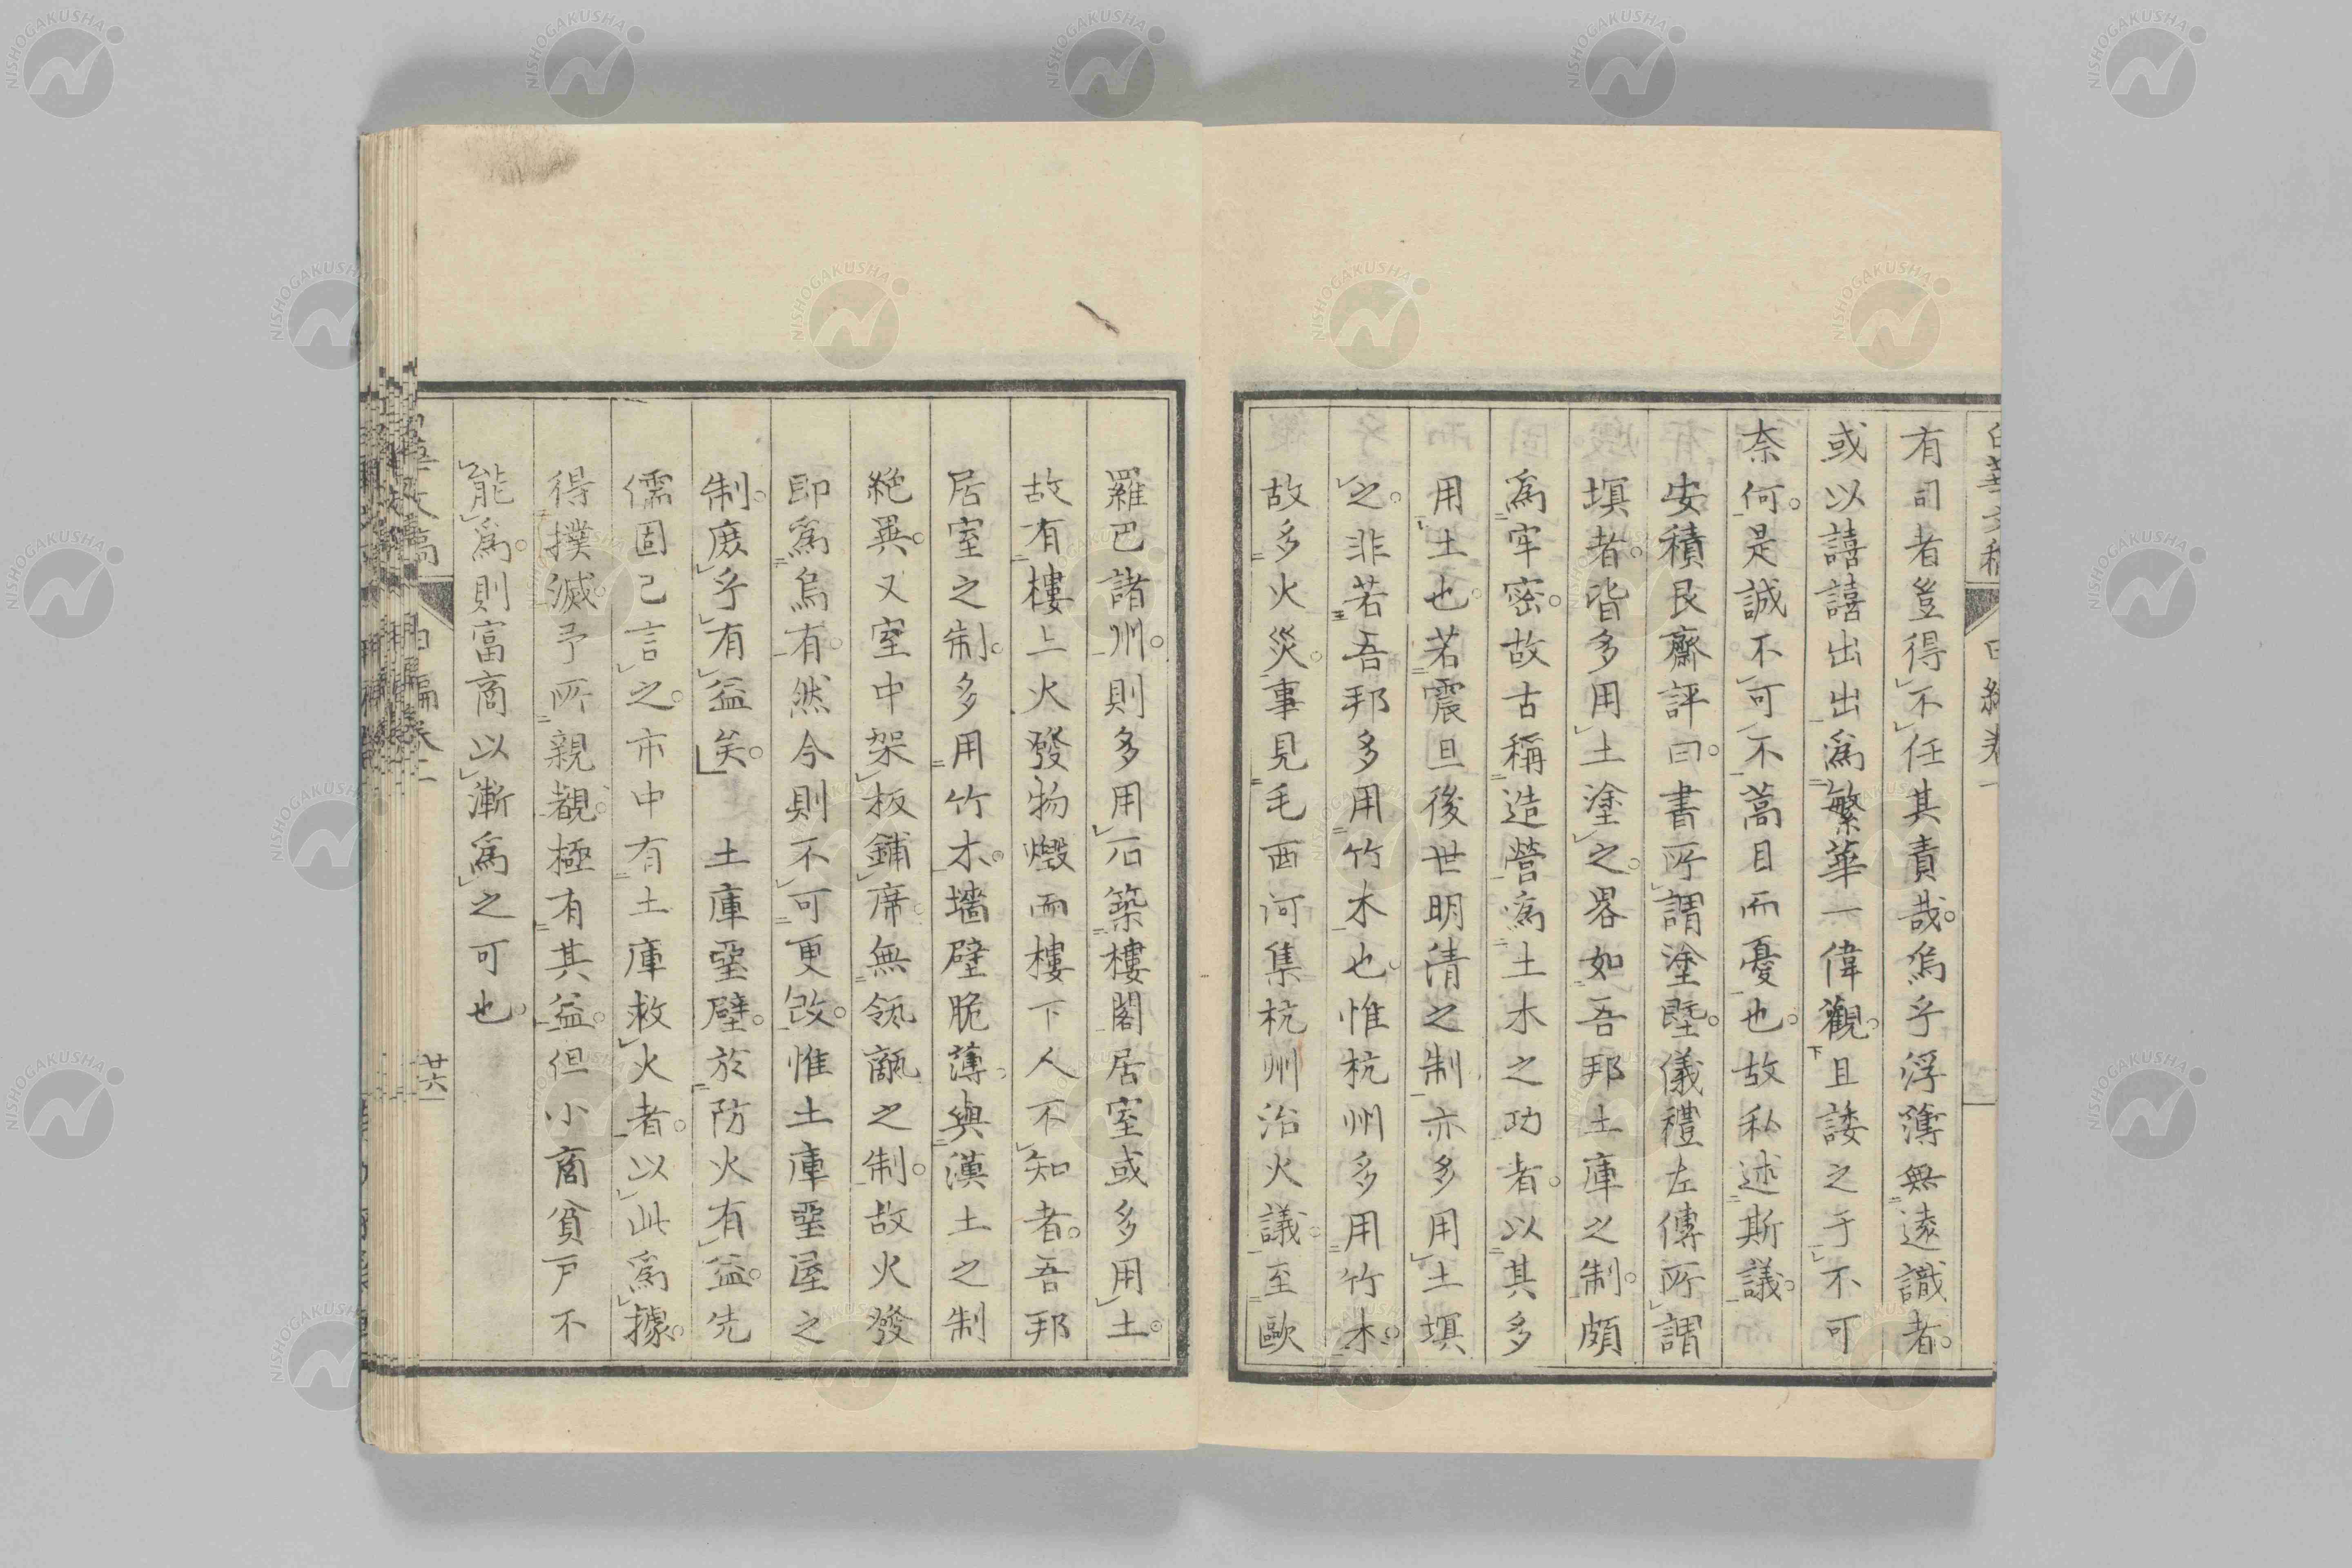 有司者豈得不任其責哉。烏乎浮薄無遠識者。
或以譆譆出出爲繁華一偉觀。且諉之于不可
奈何。是誠不可不蒿目而憂也。故私述斯議。
安積艮齋評曰。書所謂塗塈。儀禮左傳所謂
塡者。皆多用土塗之。畧如吾邦土庫之制。頗
爲牢密。故古稱造營爲土木之功者。以其多
用土也。若震旦後世明清之制亦多用土塡
之。非若吾邦多用竹木也。惟杭州多用竹木。
故多火災。事見毛西河集杭州治火議。至歐
羅巴諸州。則多用石築樓閣居室或多用土。
故有樓上火發物燬而樓下人不知者。吾邦
居室之制。多用竹木。墻壁脆薄。與漢土之制
絶異。又室中架板鋪席。無瓴甋之制。故火發
即爲烏有。然今則不可更改。惟土庫堊屋之
制。度乎有益矣。 土庫堊壁。於防火有益。先
儒固已言之。市中有土庫救火者。以此爲據。
得撲滅。予所親覩。極有其益。但小商貧戸不
能爲。則富商以漸爲之可也。
廿六
NISHOGAKUSHA